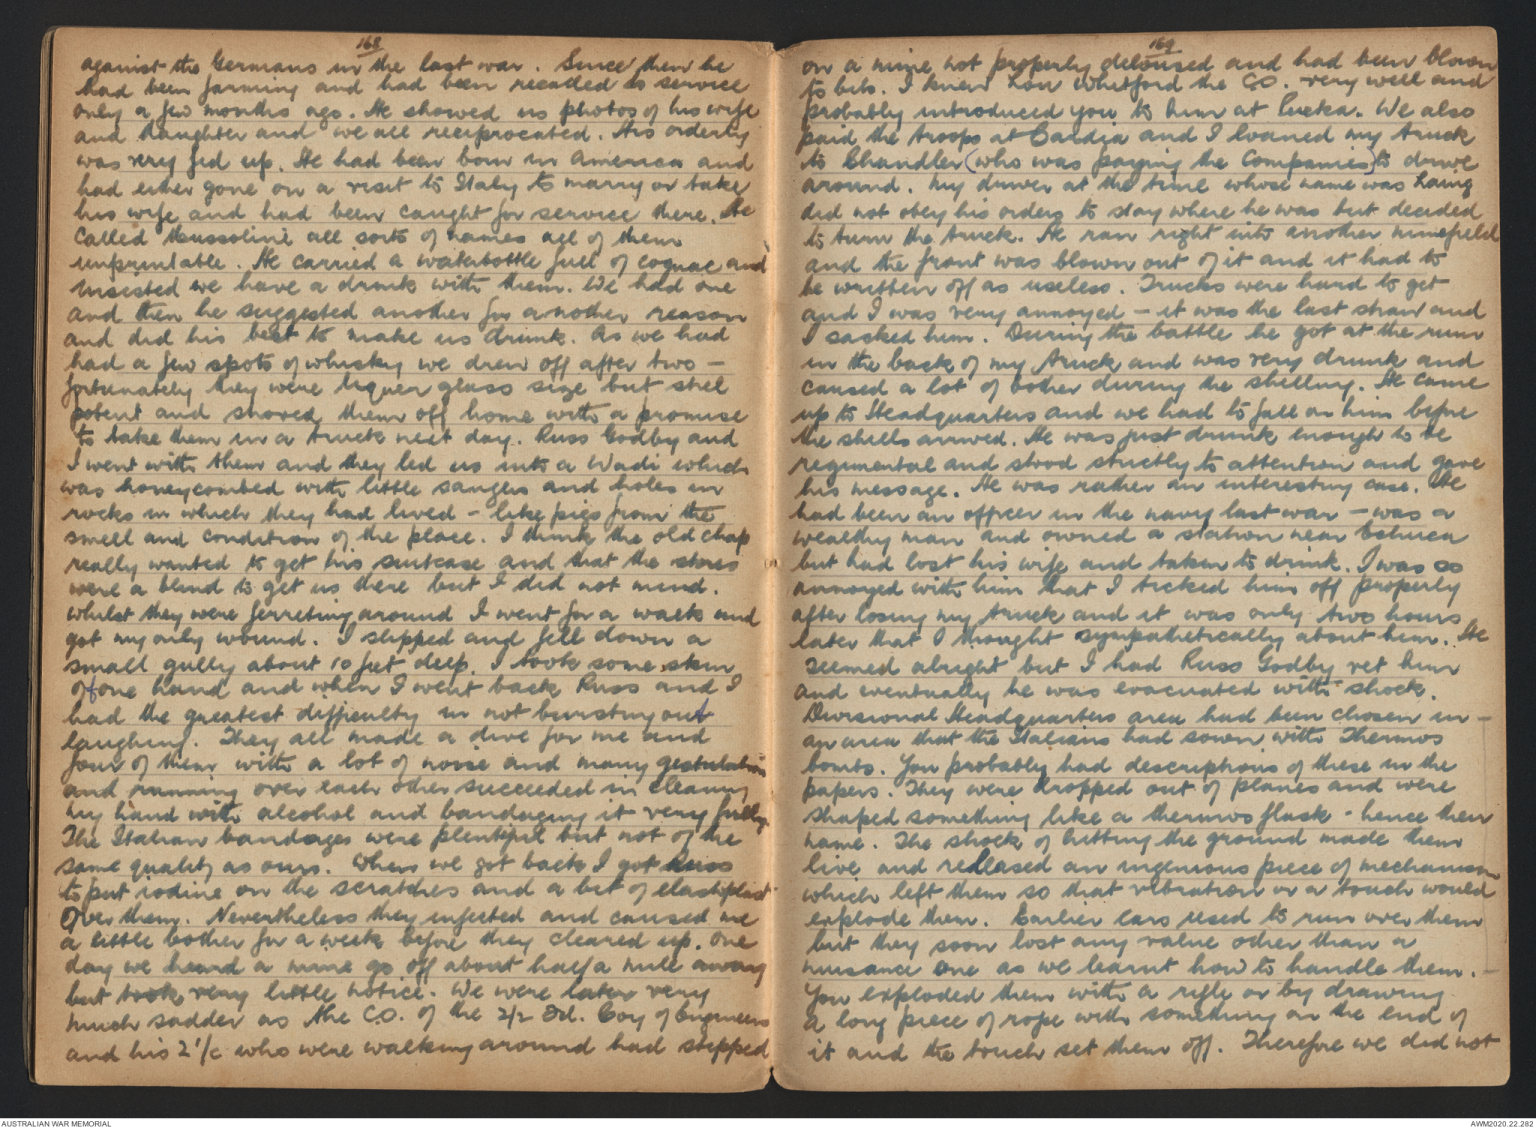 168
against the Germans in the last war. Since then he
had been farming and had been recalled to service
only a few months ago. He showed us photos of his wife
and daughter and we all reciprocated. His orderly
was very fed up. He had been born in America and
had either gone on a visit to Italy to marry or take
his wife and had been caught for service there. He
called Mussolini all sorts of names all of them
unprintable. He carried a waterbottle full of cognac and
insisted we have a drink with them. We had one
and then he suggested another for another reason
and did his best to make us drunk. As we had
had a few spots of whisky we drew off after two -
fortunately they were liquer glass size but still
potent and shoved them off home with a promise
to take them in a truck next day. Russ Godby and
I went with them and they led us into a Wadi which
was honeycombed with little sangers and holes in
rocks in which they had lived - like pigs from the
smell and condition of the place. I think the old chap
really wanted to get his suitcase and that the stores
were a blind to get us there but I did not mind.
Whilst they were ferreting around I went for a walk and
got my only wound. I slipped and fell down a
small gully about 10 feet deep. I took some skin
off one hand and when I went back Russ and I
had the greatest difficulty in not bursting out
laughing. They all made a dive for me and
four of them with a lot of noise and many gestulations
and running over each other succeeded in cleaning
my hand with alcohol and bandaging it very fully.
The Italian bandages were plentiful but not of the
same quality as ours. When we got back I got Russ
to put iodine on the scratches and a bit of elastoplast
over them. Nevertheless they infected and caused me
a little bother for a week before they cleared up. One
day we heard a mine go off about half a mile away
but took very little notice. We were later very
much sadder as the C.O. of the 2/2 Fd. Coy of Engineers
and his 2 i/c who were walking around had stepped
169
on a mine not properly deloused and had been blown
to bits. I knew Lon Whitford the C.O. very well and
probably introduced you to him at Pucka. We also
paid the troops at Bardia and I loaned my truck
to Chandler (who was paying the Companies) to drive
around. My driver at the time whose name was Laing
did not obey his orders to stay where he was but decided
to turn the truck. He ran right into another minefield
and the front was blown out of it and it had to
be written off as useless. Trucks were hard to get
and I was very annoyed - it was the last straw and
I sacked him. During the battle he got at the rum
in the back of my truck and was very drunk and
caused a lot of bother during the shelling. He came
up to Headquarters and we had to fall on him before
the shells arrived. He was just drunk enough to be
regimental and stood strictly to attention and gave
his message. He was rather an interesting case. He
had been an officer in the navy last war - was a
wealthy man and owned a station near Echuca
but had lost his wife and taken to drink. I was so
annoyed with him that I ticked him off properly
after losing my truck and it was only two hours
later that I thought sympathetically about him. He
seemed alright but I had Russ Godby vet him
and eventually he was evacuated with shock.
Divisional Headquarters area had been chosen in -
an area that the Italians had sown with Thermos
bombs. You probably had descriptions of these in the
papers. They were dropped out of planes and were
shaped something like a thermos flask - hence their
name. The shock of hitting the ground made them
live and released an ingenious piece of mechanism
which left them so that vibration or a touch would
explode them. Earlier cars used to run over them
but they soon lost any value other than a
nuisance one as we learnt how to handle them. -
You exploded them with a rifle or by drawing
a long piece of rope with something on the end of
it and the touch set them off. Therefore we did not
AUSTRALIAN WAR MEMORIAL
AWM2020.22.282